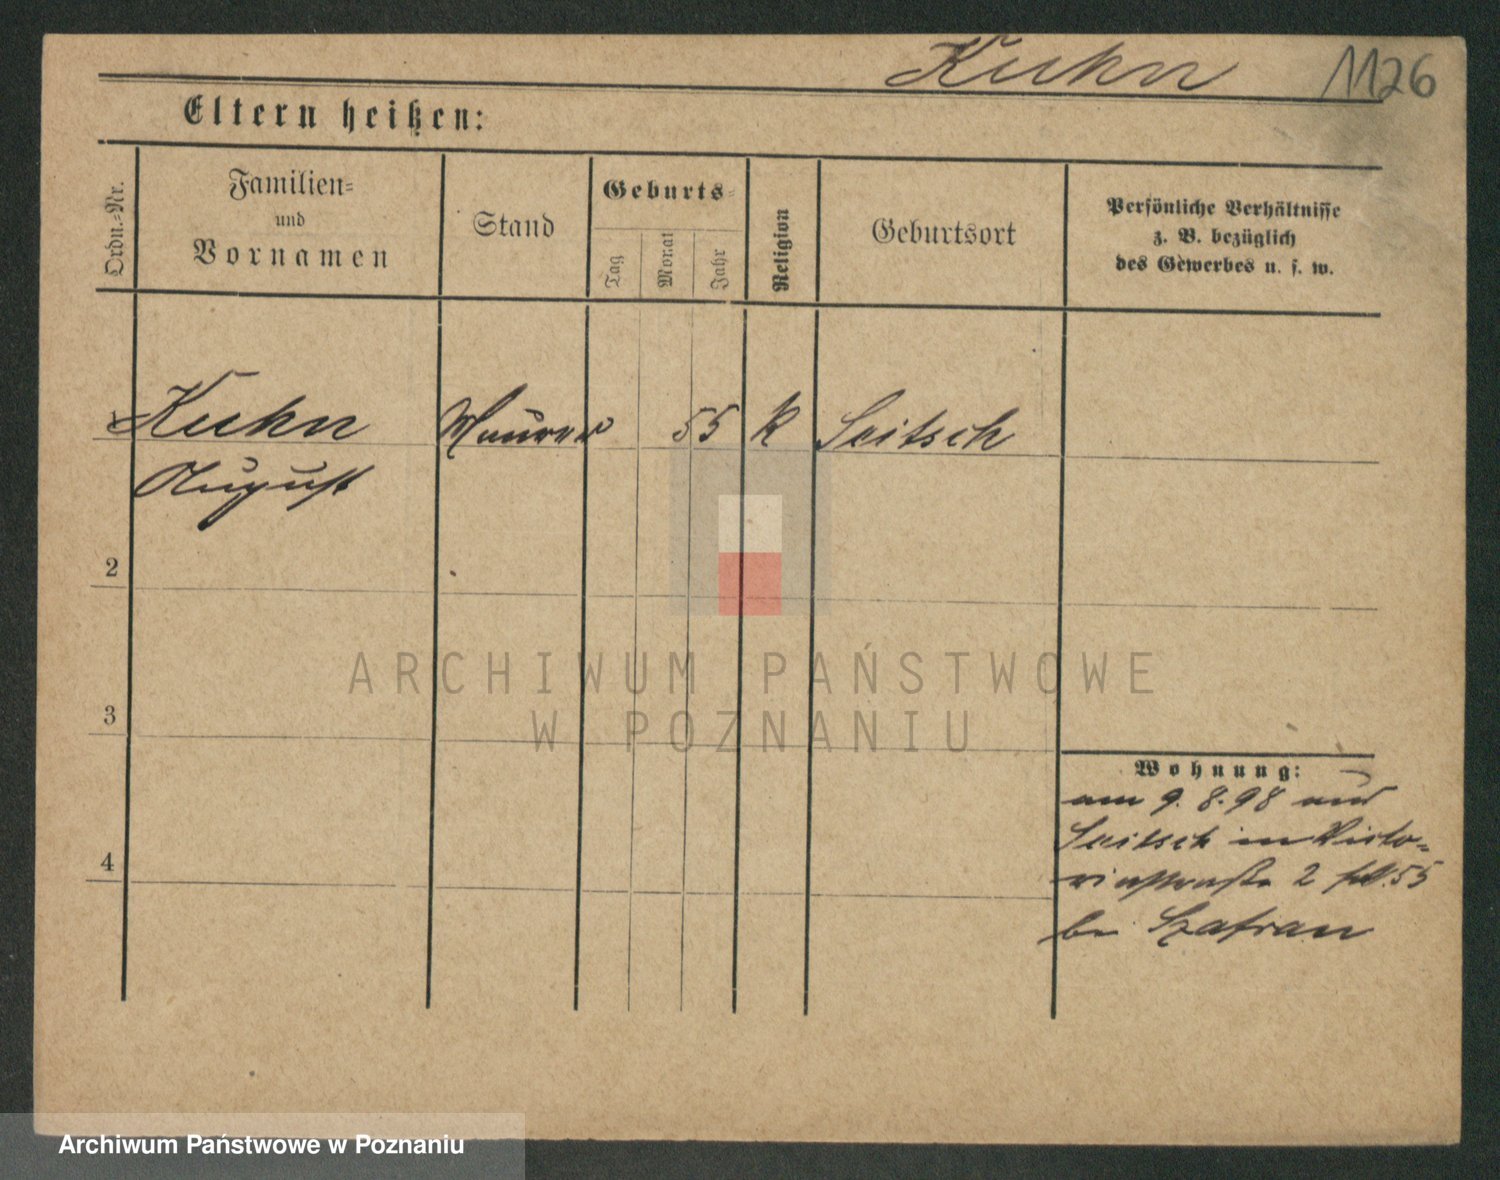 Kuhn 1126
Eltern heißen:
Ordn.=Nr.
Familien=
und
Vornamen
Stand
Geburts=
Tag
Monat
Jahr
Religion
Geburtsort
Persönliche Verhältnisse
z. B. bezüglich
des Gewerbes u. s. w.
Kuhn Maurer 55 k Seitsch
August
2
3
4
Wohnung:
am 9. 8. 98 aus
Seitsch in Victo-
riastraße 2 55
bei Szafran
ARCHIWUM PAŃSTWOWE
W POZNANIU
Archiwum Państwowe w Poznaniu